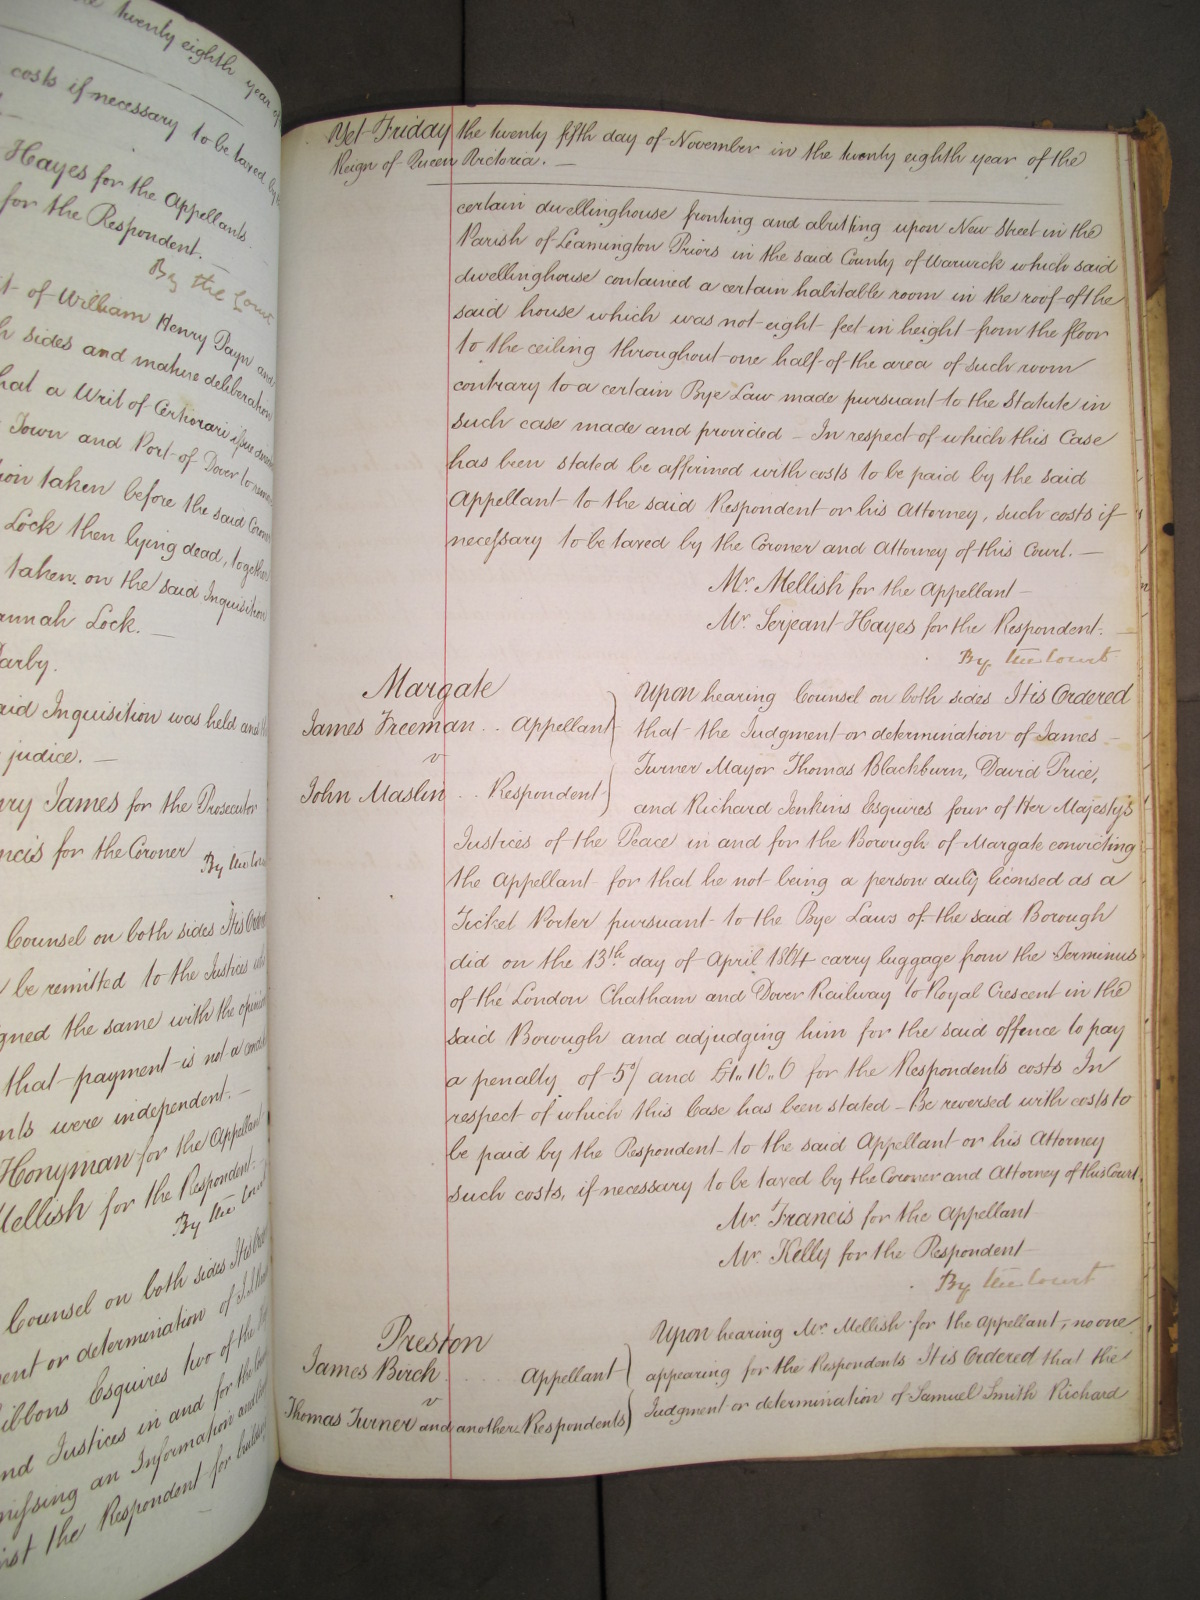 the twenty eighth year of
costs if necessary to be taxed by
Hayes for the Appellants.
for the Respondent. —
By the Court
of William Henry Payn and
sides and mature deliberation
that a Writ of Certiorari issue
Town and Port of Dover to
taken before the said Coroner
Lock then lying dead, together
taken on the said Inquisition
Hannah Lock. —
Darby.
said Inquisition was held and
judice. —
Henry James for the Prosecutor
Francis for the Coroner
By the Court
Counsel on both sides It is Ordered
be remitted to the Justices who
signed the same with the opinion
that payment is not a
were independent. —
Honyman for the Appellant
Mellish for the Respondent.
By the Court
Counsel on both sides It is
or determination of
Gibbons Esquires two of the
and Justices in and for the
an Information
the Respondent for building
Yet Friday the twenty fifth day of November in the twenty eighth year of the
Reign of Queen Victoria. —
certain dwellinghouse fronting and abutting upon New Street in the
Parish of Leamington Priors in the said County of Warwick which said
dwellinghouse contained a certain habitable room in the roof of the
said house which was not eight feet in height from the floor
to the ceiling throughout one half of the area of such room
contrary to a certain Bye Law made pursuant to the Statute in
such case made and provided – In respect of which this Case
has been stated be affirmed with costs to be paid by the said
Appellant to the said Respondent or his Attorney, such costs if
necessary to be taxed by the Coroner and Attorney of this Court. —
Mr. Mellish for the Appellant —
Mr. Serjeant Hayes for the Respondent. —
By the Court
Margate
James Freeman . . Appellant
v
John Maslin . . Respondent
Upon hearing Counsel on both sides It is Ordered
that the Judgment or determination of James –
Turner Mayor Thomas Blackburn, David Price,
and Richard Jenkins Esquires four of Her Majesty's
Justices of the Peace in and for the Borough of Margate convicting
the Appellant for that he not being a person duly licensed as a
Ticket Porter pursuant to the Bye Laws of the said Borough
did on the 13th day of April 1864 carry luggage from the Terminus
of the London Chatham and Dover Railway to Royal Crescent in the
said Borough and adjudging him for the said offence to pay
a penalty of 5/ and £1.. 16.. 0 for the Respondents costs In
respect of which this Case has been stated – Be reversed with costs to
be paid by the Respondent to the said Appellant or his Attorney
such costs, if necessary to be taxed by the Coroner and Attorney of this Court.
Mr. Francis for the Appellant
Mr. Kelly for the Respondent
By the Court
Preston
James Birch . . . Appellant
v
Thomas Turner and another Respondents
Upon hearing Mr. Mellish for the Appellant, no one
appearing for the Respondents It is Ordered that the
Judgment or determination of Samuel Smith Richard